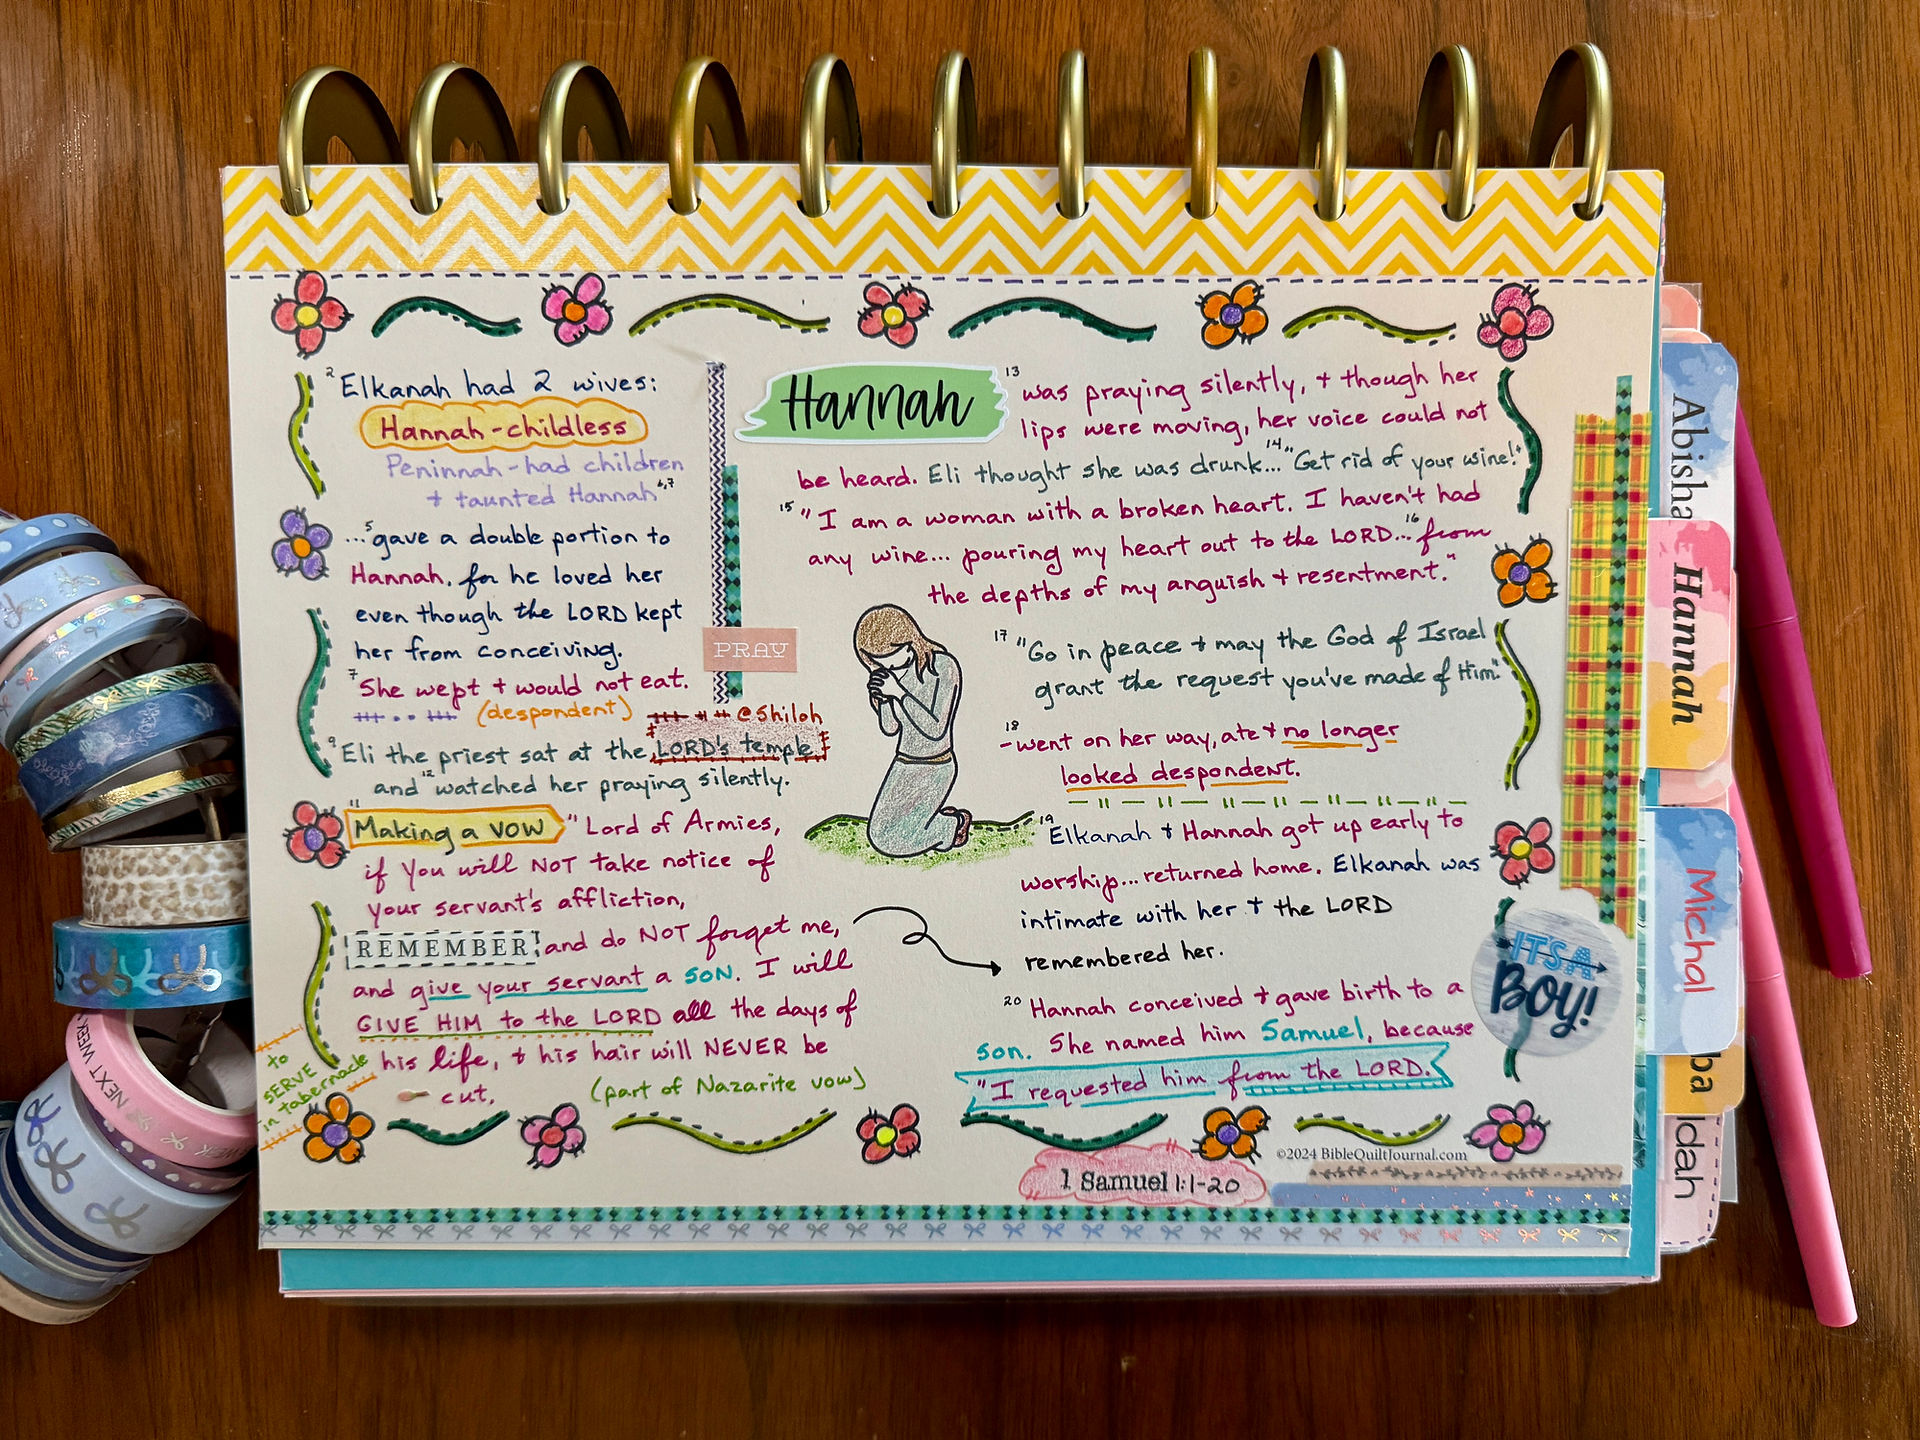 2 Elkanah had 2 wives:
Hannah - childless
Peninnah - had children
+ taunted Hannah 6,7
...5 gave a double portion to
Hannah, for he loved her
even though the LORD kept
her from conceiving.
7 She wept + would not eat.
(despondent)
@Shiloh
9 Eli the priest sat at the LORD's temple
and 12 watched her praying silently.
11 Making a vow "Lord of Armies,
if You will NOT take notice of
your servant's affliction,
REMEMBER and do NOT forget me,
and give your servant a SON. I will
GIVE HIM to the LORD all the days of
his life, + his hair will NEVER be
cut. (part of Nazarite vow)
to
SERVE
in tabernacle
PRAY
Hannah
13 was praying silently, + though her
lips were moving, her voice could not
be heard. Eli thought she was drunk... 14 "Get rid of your wine!"
15 "I am a woman with a broken heart. I haven't had
any wine... pouring my heart out to the LORD... 16 from
the depths of my anguish + resentment."
17 "Go in peace + may the God of Israel
grant the request you've made of Him."
18 - went on her way, ate + no longer
looked despondent.
19 Elkanah + Hannah got up early to
worship... returned home. Elkanah was
intimate with her + the LORD
remembered her.
20 Hannah conceived + gave birth to a
son. She named him Samuel, because
"I requested him from the LORD."
IT'S A
BOY!
©2024 BibleQuiltJournal.com
1 Samuel 1:1-20
Abisha
Hannah
Michal
ba
ldah
NEXT WEEK